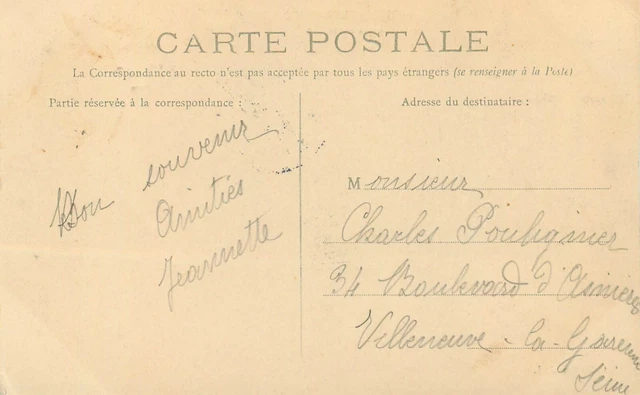 CARTE POSTALE
La Correspondance au recto n'est pas acceptée par tous les pays étrangers (se renseigner à la Poste)
Partie réservée à la correspondance :
Bon souvenir
Amitiés
Jeannette
Adresse du destinataire :
Monsieur
Charles
34 Boulevard d'Asnières
Villeneuve-la-Garenne
Seine